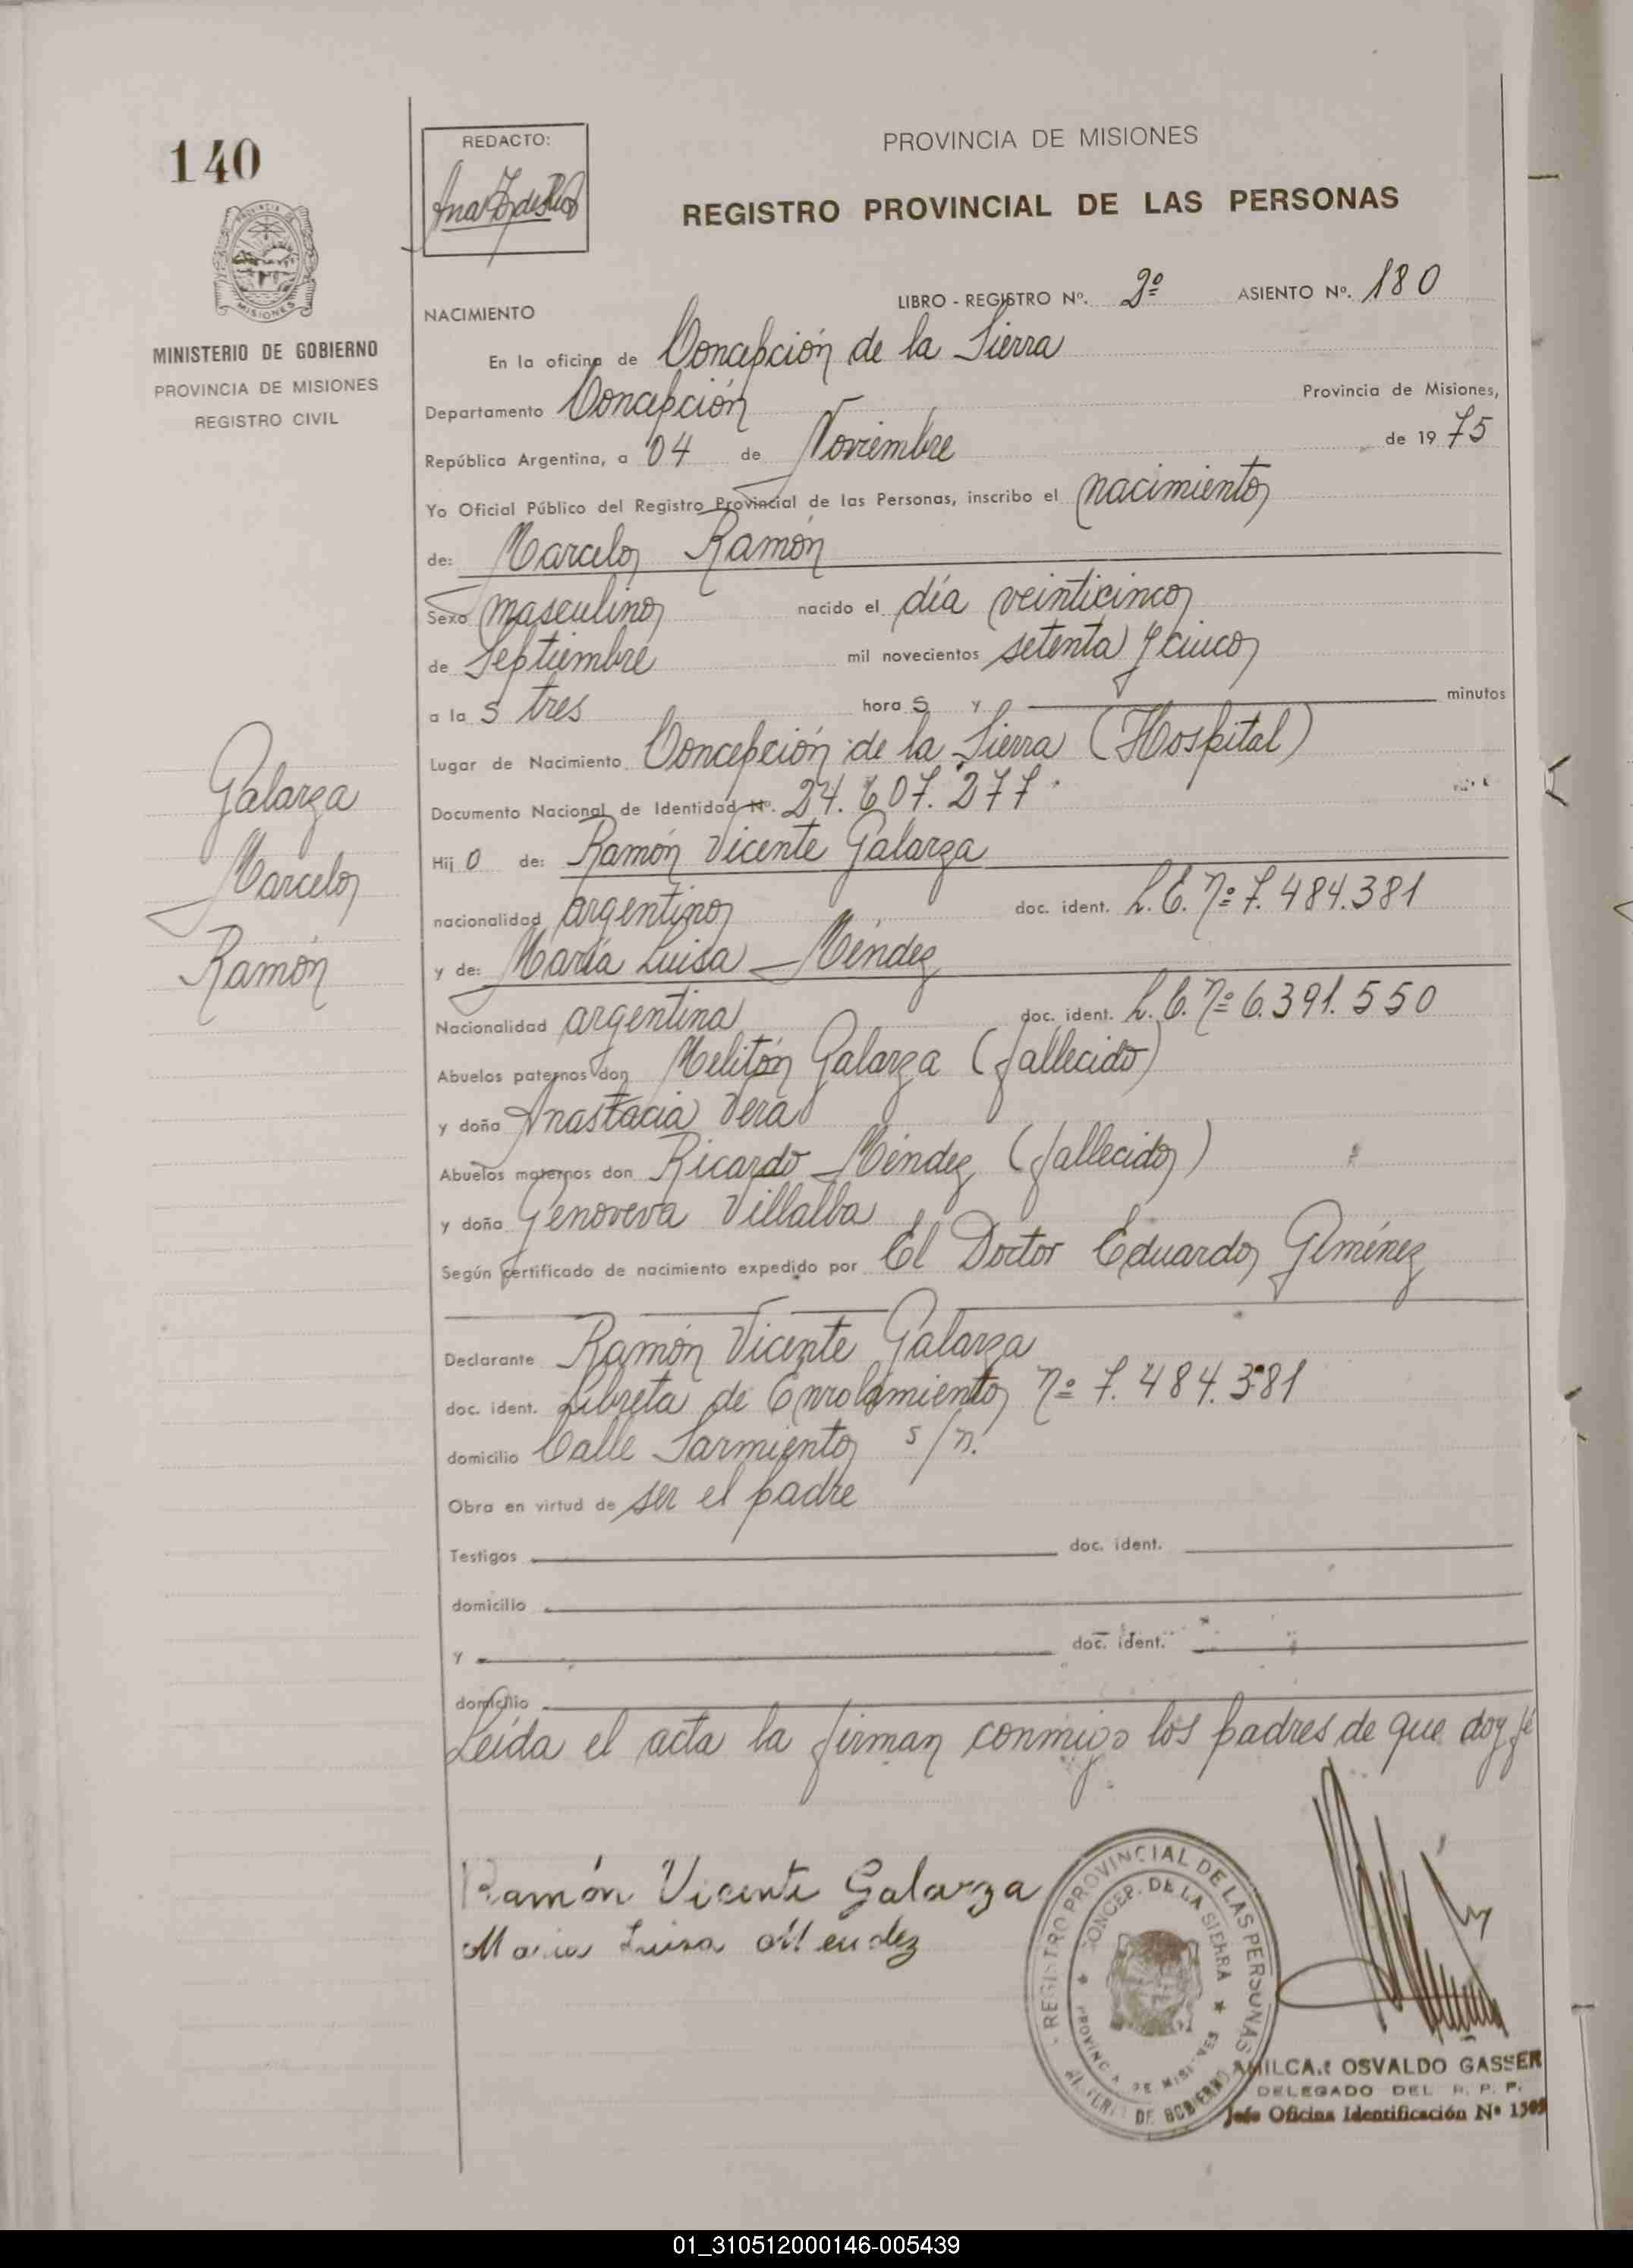 140
PROVINCIA DE
MISIONES
MINISTERIO DE GOBIERNO
PROVINCIA DE MISIONES
REGISTRO CIVIL
Galarza
Marcelo
Ramón
REDACTO:
PROVINCIA DE MISIONES
REGISTRO PROVINCIAL DE LAS PERSONAS
NACIMIENTO LIBRO - REGISTRO Nº. 2º ASIENTO Nº. 180
En la oficina de Concepción de la Sierra
Departamento Concepción Provincia de Misiones,
República Argentina, a 04 de Noviembre de 1975
Yo Oficial Público del Registro Provincial de las Personas, inscribo el nacimiento
de: Marcelo Ramón
Sexo masculino nacido el día veinticinco
de Septiembre mil novecientos setenta y cinco
a la s tres hora s y minutos
Lugar de Nacimiento Concepción de la Sierra (Hospital)
Documento Nacional de Identidad Nº. 24.607.277
Hij o de: Ramón Vicente Galarza
nacionalidad argentino doc. ident. L.E. nº 7.484.381
y de: María Luisa Méndez
Nacionalidad argentina doc. ident. L.C. nº 6.391.550
Abuelos paternos don Melitón Galarza (fallecido)
y doña Anastacia Vera
Abuelos maternos don Ricardo Méndez (fallecido)
y doña Genoveva Villalba
Según certificado de nacimiento expedido por El Doctor Eduardo Giménez
Declarante Ramón Vicente Galarza
doc. ident. Libreta de Enrolamiento nº 7.484.381
domicilio Calle Sarmiento s/n.
Obra en virtud de ser el padre
Testigos doc. ident.
domicilio
y doc. ident.
domicilio
Leída el acta la firman conmigo los padres de que doy fé
Ramón Vicente Galarza
Maria Luisa Mendez
REGISTRO PROVINCIAL DE LAS PERSONAS
CONCEP. DE LA SIERRA
PROVINCIA DE MISIONES
DE GOBIERNO
AMILCAR OSVALDO GASSER
DELEGADO DEL R. P. P.
Jefe Oficina Identificación Nº 1505
01_310512000146-005439